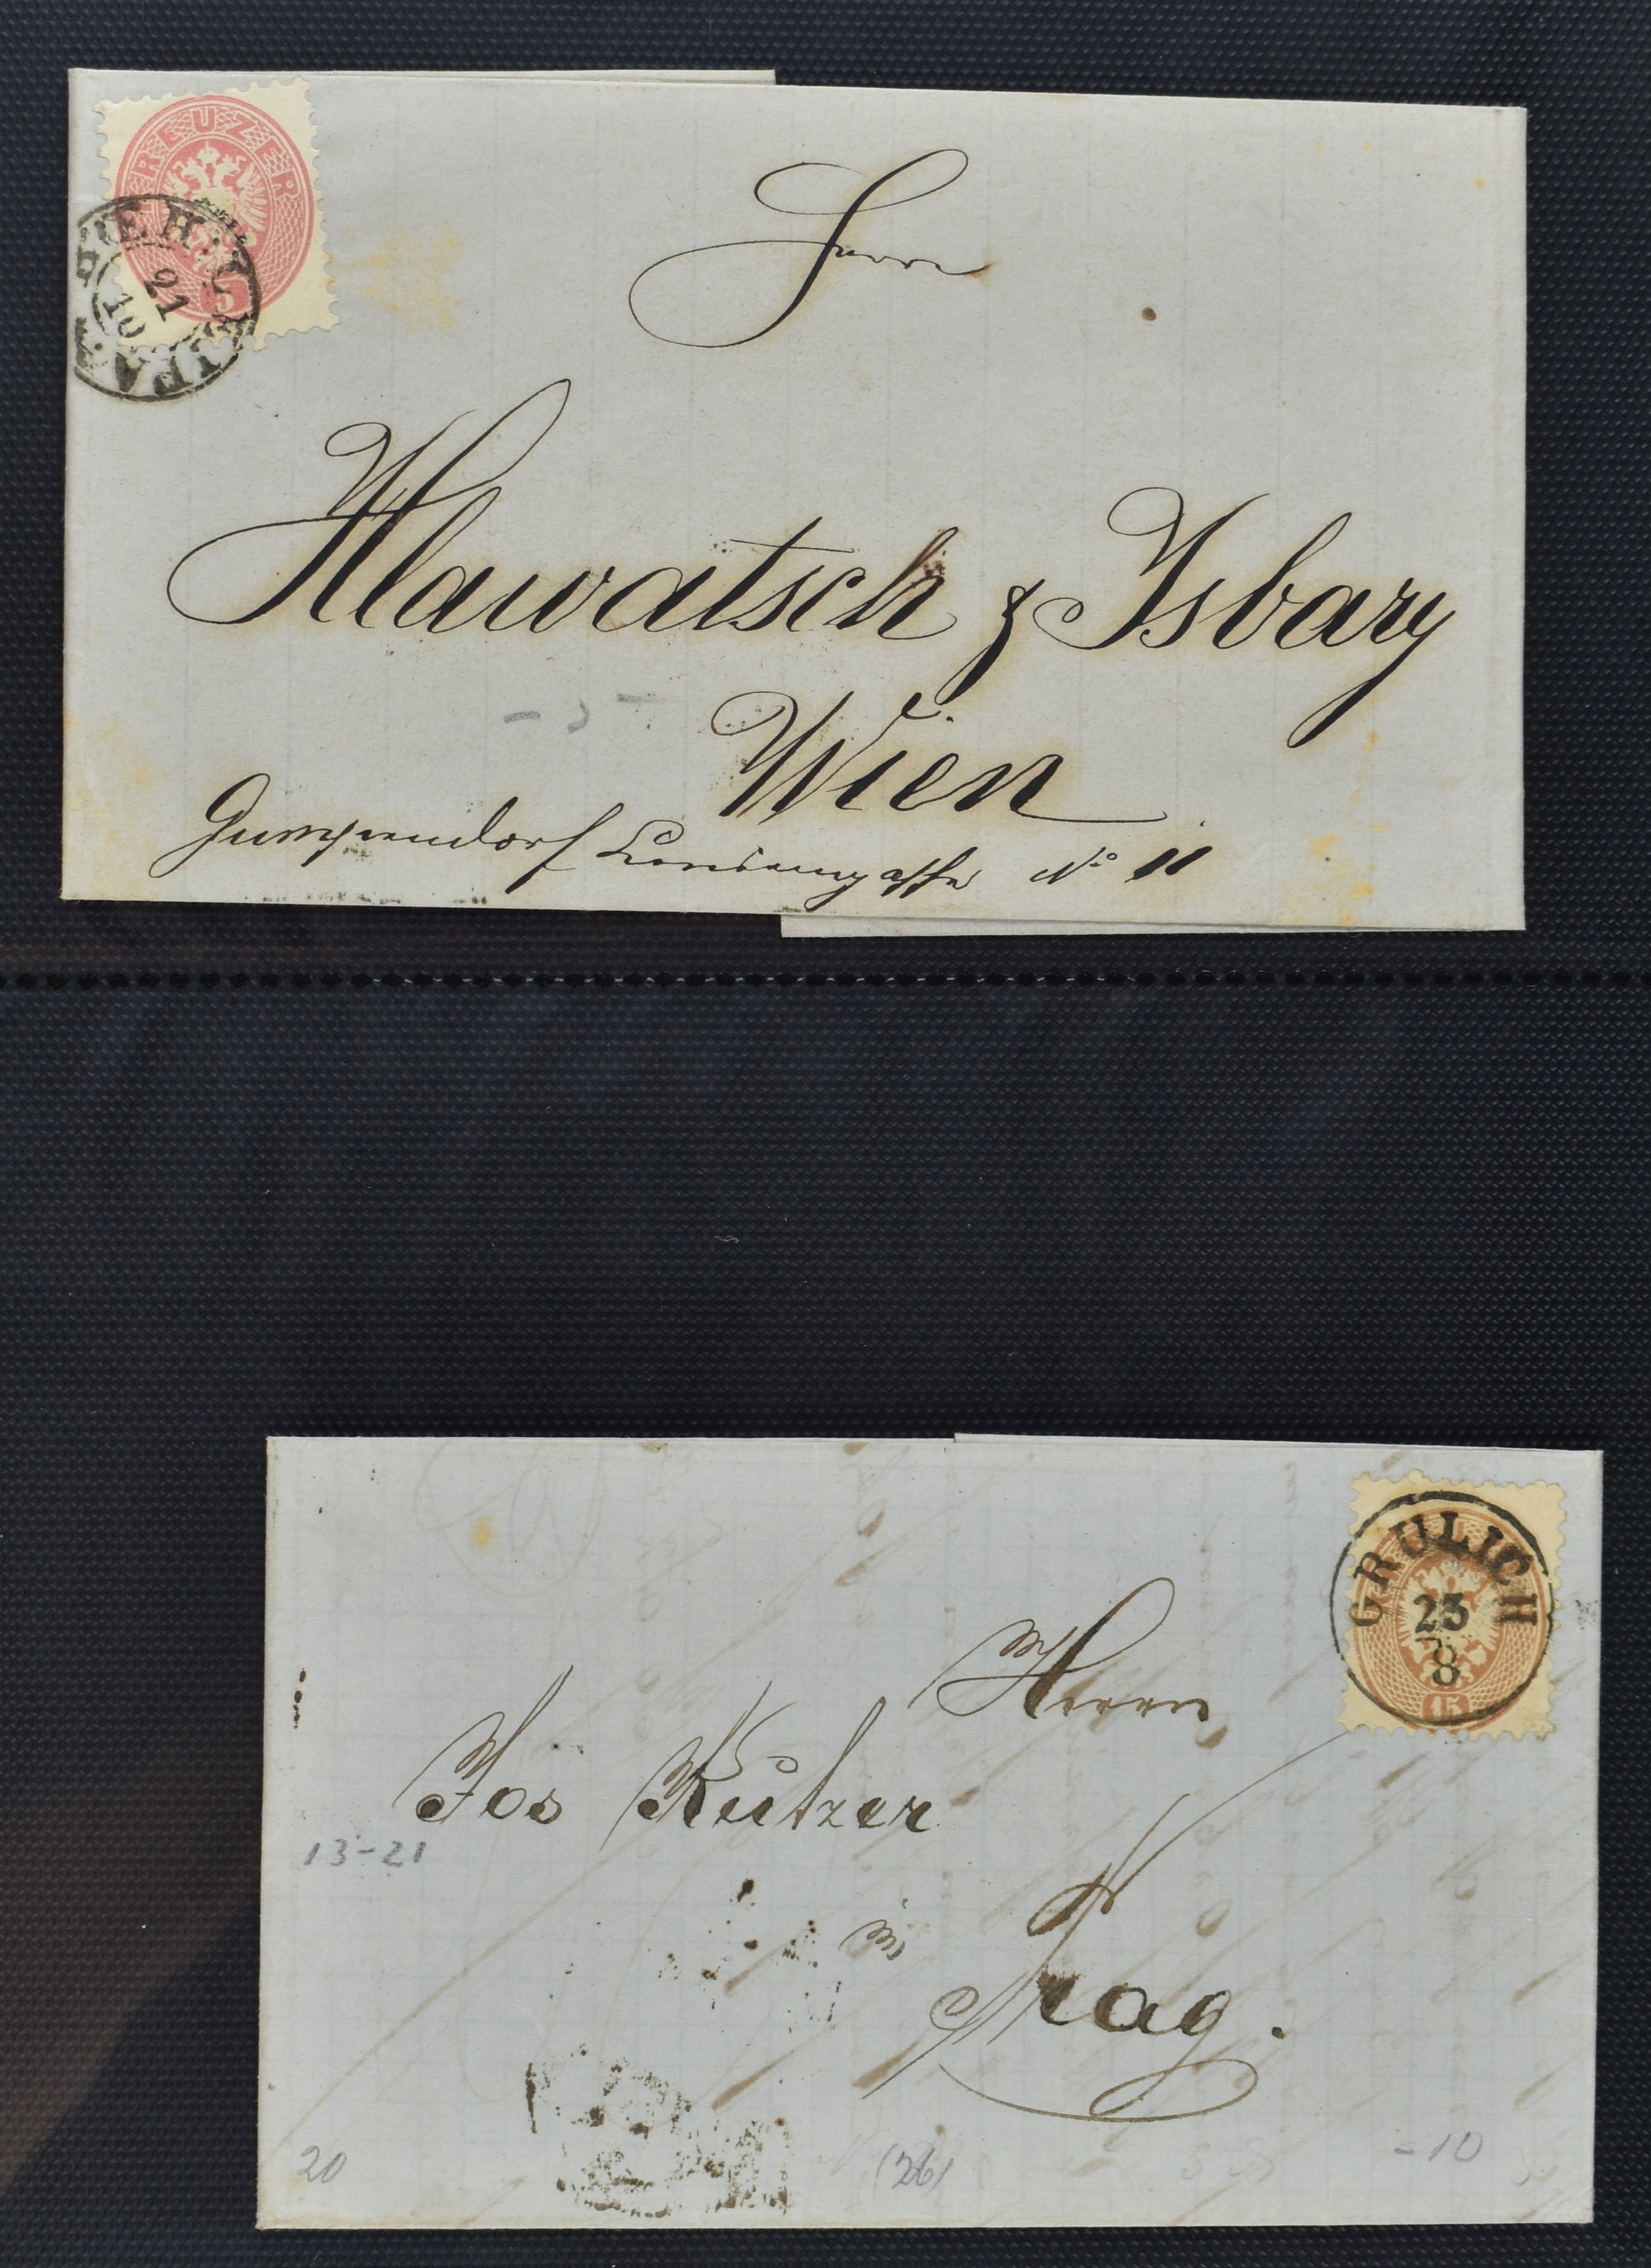 KREUZER
5
21
10
Herrn
Hlawatsch & Isbary
Wien
Gumpendorf Louisengasse No 11
GRULICH
23
8
15
Herrn
Jos Kutzer
13-21
in
Prag.
20
(26)
-10